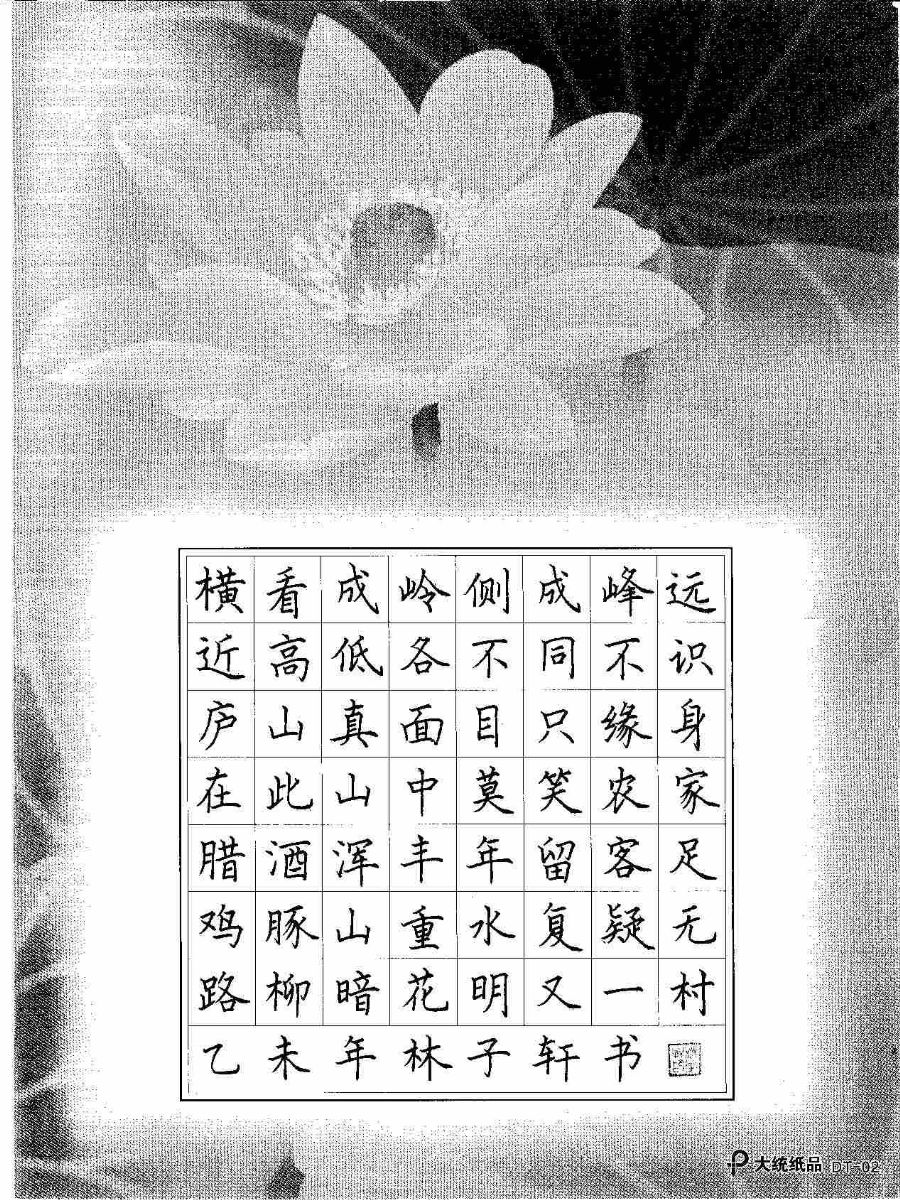 横看成岭侧成峰远
近高低各不同不识
庐山真面目只缘身
在此山中莫笑农家
腊酒浑丰年留客足
鸡豚山重水复疑无
路柳暗花明又一村
乙未年林子轩书
大统纸品 DT-02